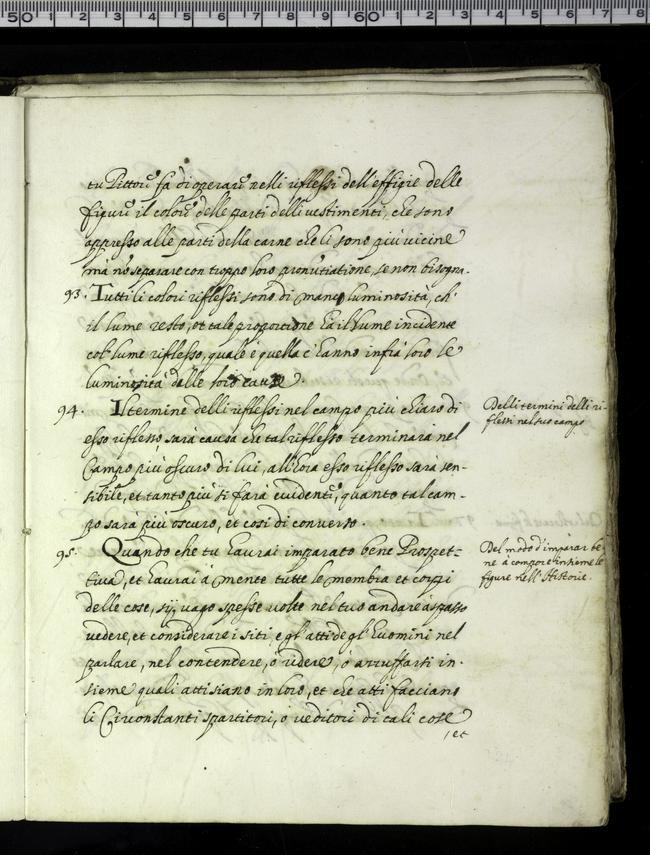 tu Pittore fà di operare nelli riflessi dell'effigie delle
figure il colore delle parti delli vestimenti, che sono
appresso alle parti della carne che li sono più vicine
mà nõ separare con troppo loro pronũtiatione, se non bisogna.
93. Tutti li colori riflessi sono di manco luminosità, ch'
il lume resto, et tale proporcione hà il lume incidente
col' lume riflesso, quale è quella c'hanno infrà loro le
luminosità delle loro cause.
94. Il termine delli riflessi nel campo più chiaro di
esso riflesso sarà causa che tal riflesso terminarà nel
Campo più oscuro di lui, all'hora esso riflesso sarà sen-
sibile, et tanto più si farà euidente, quanto tal cam-
po sarà più oscuro, et così di conuerso.
Delli termini delli ri-
flessi nel suo campo
95. Quando che tu haurai imparato bene Prospet-
tiua, et haurai à mente tutte le membra et corpi
delle cose, sij uago spesse uolte nel tuo andare à spasso
uedere, et considerare i siti, e gl'atti de gl'huomini nel
parlare, nel contendere, ò ridere, ò azzuffarsi in-
sieme quali atti siano in loro, et che atti facciano
li Circonstanti spartitori, ò ueditori di tali cose
, et
Del modo d'imparar be-
ne à comporre insieme le
figure nell'Historie.